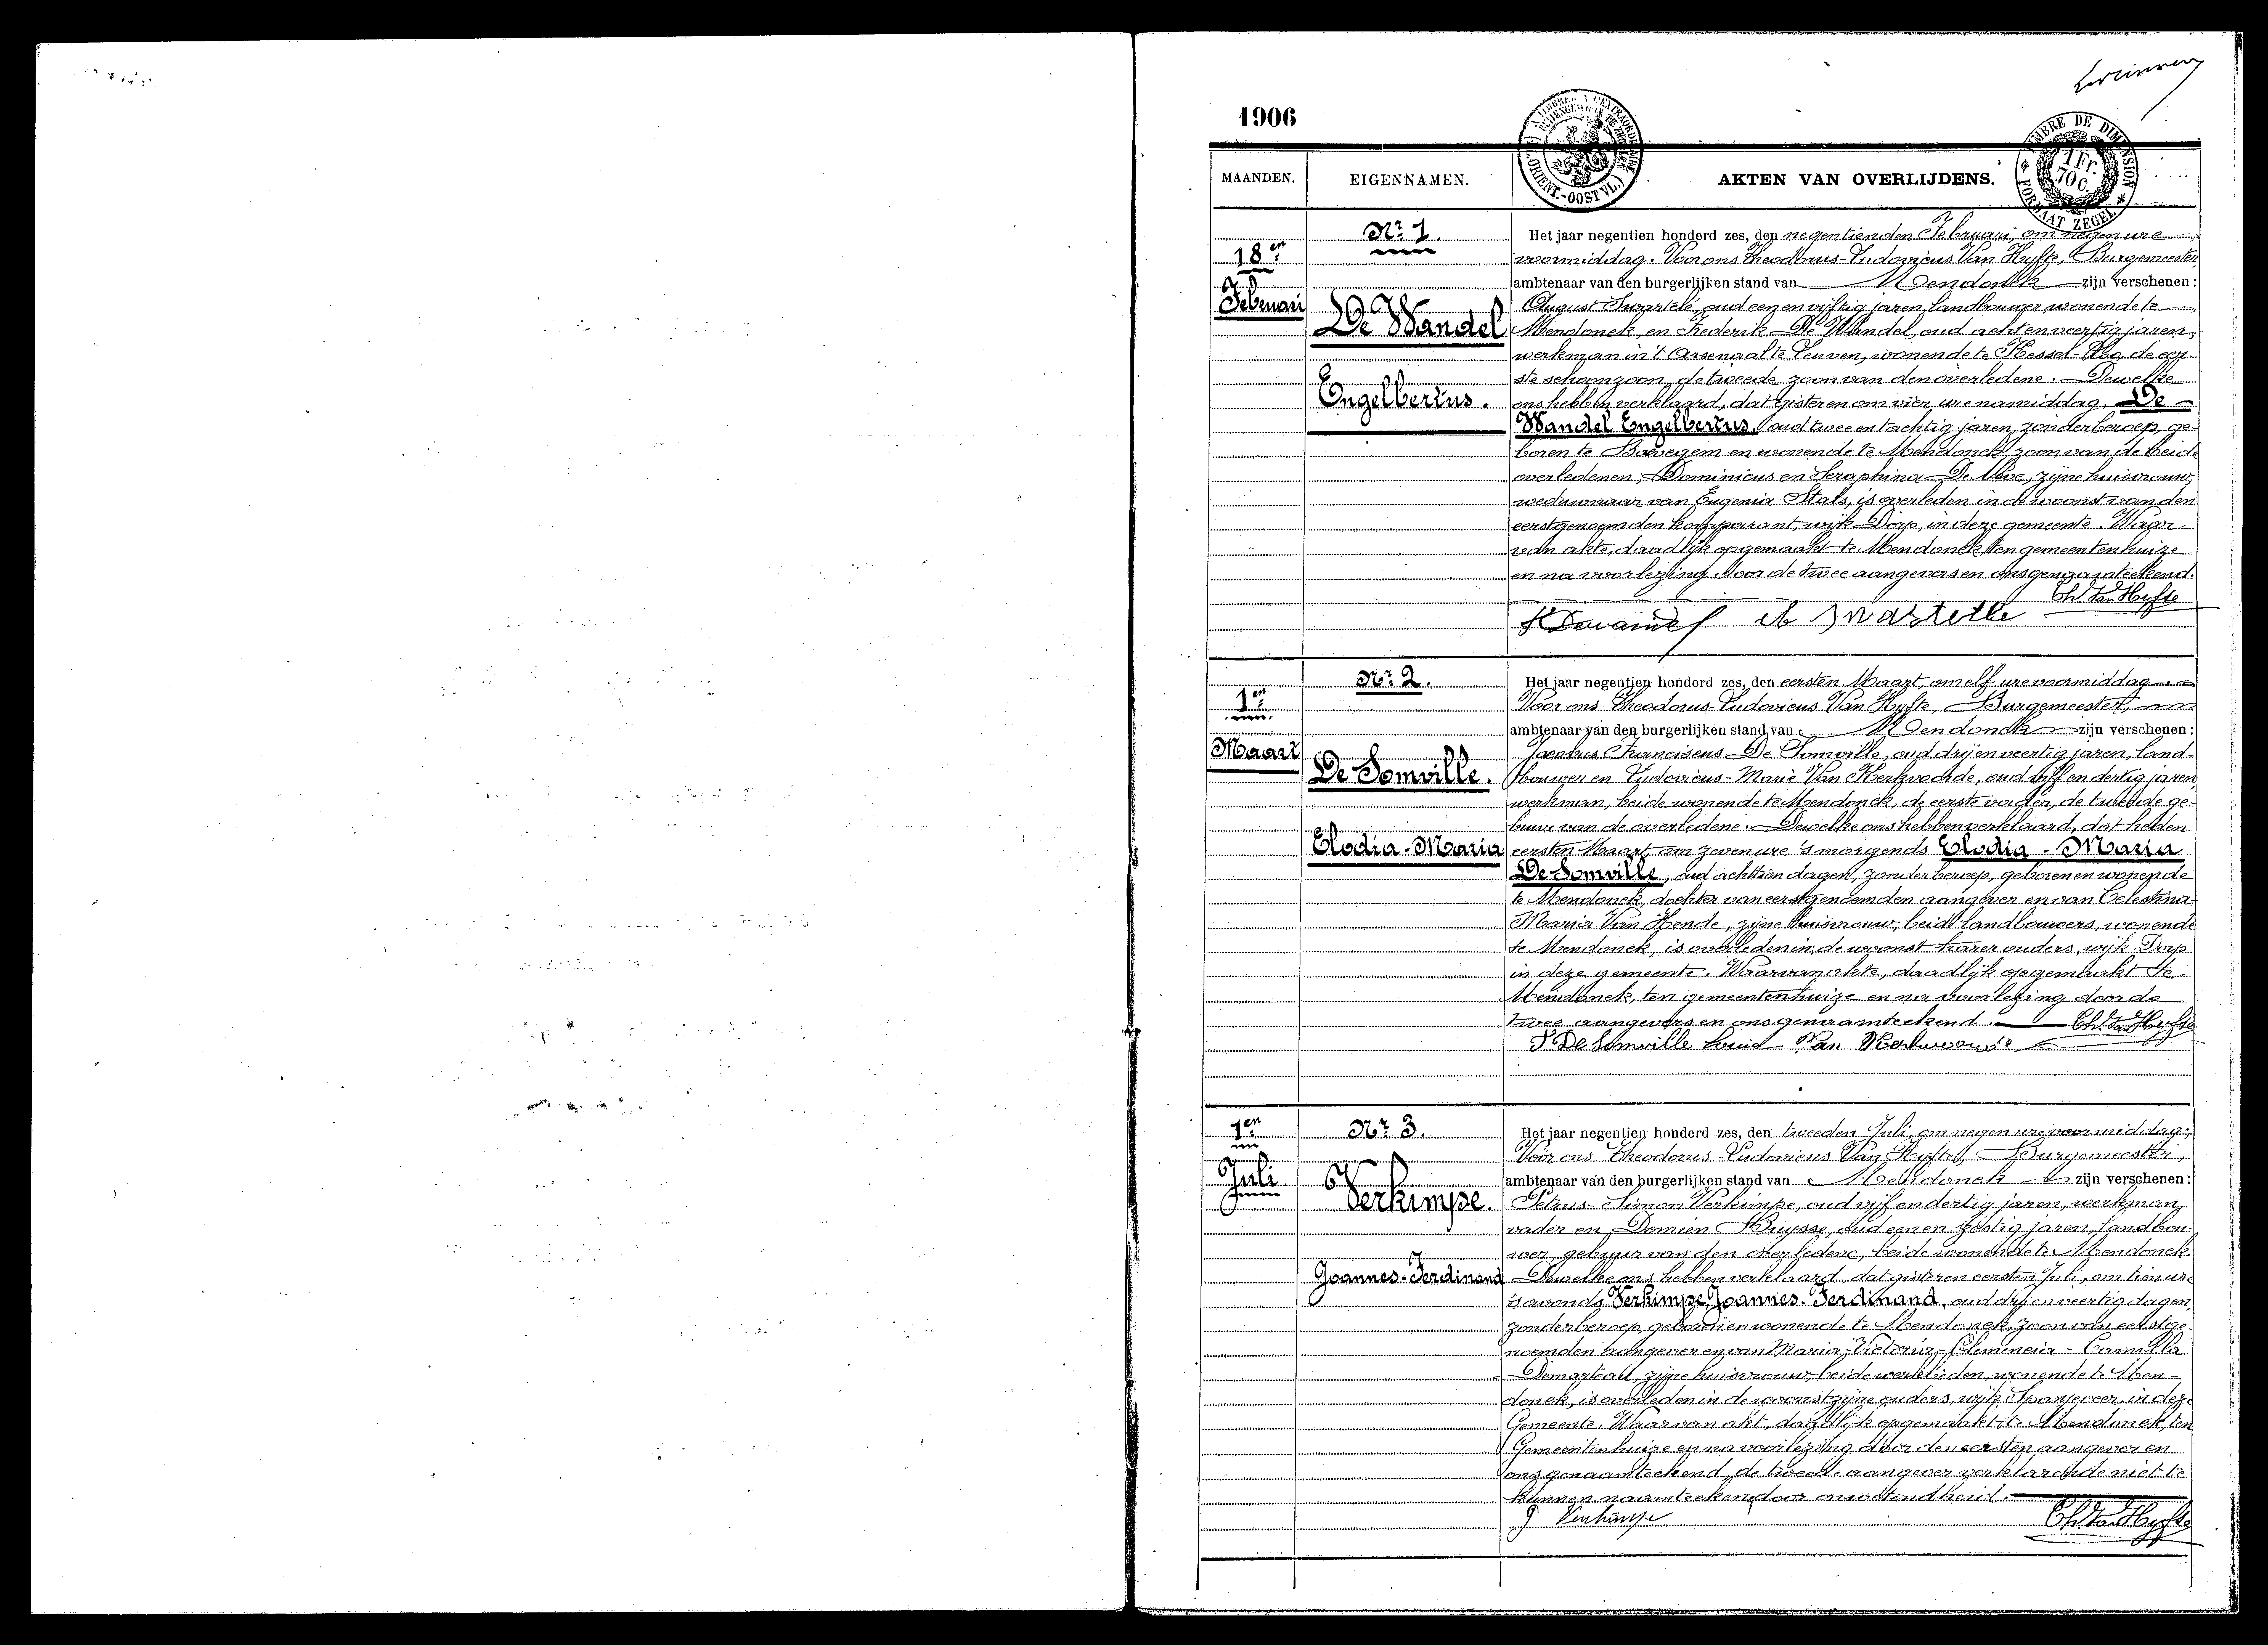 1906
TIMBRE DE DIMENSION
FORMAAT ZEGEL
1 Fr.
70 C.
MAANDEN.
EIGENNAMEN.
AKTEN VAN OVERLIJDENS.
18en
Februari
Nr 1.
De Wandel
Engelbertus.
Het jaar negentien honderd zes, den negentienden Februari, om negen ure
voormiddag. Voor ons Theodorus-Ludovicus Van Hyfte, Burgemeester,
ambtenaar van den burgerlijken stand van Mendonck zijn verschenen:
August Swartelé, oud een en vijftig jaren, landbouwer wonende te
Mendonck, en Frederik De Wandel, oud acht en veertig jaren,
werkman in 't Arsenaal te Leuven, wonende te Kessel-Loo, de eer-
ste schoonzoon, de tweede zoon van den overledene. Dewelke
ons hebben verklaard, dat gisteren om vier ure namiddag, De
Wandel Engelbertus, oud twee en tachtig jaren, zonder beroep, ge-
boren te Bavegem en wonende te Mendonck, zoon van de beide
overledenen, Dominicus en Seraphina De Meve, zijne huisvrouw,
weduwnaar van Eugenia Stals, is overleden in de woonst van den
eerstgenoemden komparant, wijk Dorp, in deze gemeente. Waar-
van akte, daadlijk opgemaakt te Mendonck, ten gemeentenhuize
en na voorlezing door de twee aangevers en ons genaamteekend.
Th. Van Hyfte
1en
Maart
Nr 2.
De Somville.
Elodia-Maria
Het jaar negentien honderd zes, den eersten Maart, om elf ure voormiddag
Voor ons Theodorus-Ludovicus Van Hyfte, Burgemeester,
ambtenaar van den burgerlijken stand van Mendonck zijn verschenen:
Jacobus Franciscus De Somville, oud drij en veertig jaren, land-
bouwer en Ludovicus-Marie Van Kerkvoorde, oud vijf en dertig jaren
werkman, beide wonende te Mendonck, de eerste vader, de tweede ge-
buur van de overledene. Dewelke ons hebben verklaard, dat heden
eersten Maart, om zeven ure 's morgends Elodia-Maria
De Somville, oud achttien dagen, zonder beroep, geboren en wonende
te Mendonck, dochter van eerstgenoemden aangever en van Celestina
Maria Van Hende, zijne huisvrouw, beide landbouwers, wonende
te Mendonck, is overleden in de woonst harer ouders, wijk Dorp
in deze gemeente. Waarvan akte, daadlijk opgemaakt te
Mendonck, ten gemeentenhuize en na voorlezing door de
twee aangevers en ons genaamteekend. Th. Van Hyfte
De Somville Louis Van Kerkvoorde
1en
Juli
Nr 3.
Verkimpe.
Joannes-Ferdinand
Het jaar negentien honderd zes, den tweeden Juli, om negen ure voormiddag,
Voor ons Theodorus-Ludovicus Van Hyfte, Burgemeester,
ambtenaar van den burgerlijken stand van Mendonck zijn verschenen:
Petrus-Simon Verkimpe, oud vijf en dertig jaren, werkman,
vader en Domien Buysse, oud een en zestig jaren, landbou-
wer, gebuur van den overledene, beide wonende te Mendonck.
Dewelke ons hebben verklaard dat gisteren eersten Juli, om tien ure
's avonds Verkimpe Joannes-Ferdinand, oud drij en veertig dagen,
zonder beroep, geboren en wonende te Mendonck, zoon van eerstge-
noemden aangever en van Maria-Victoria-Clemencia-Camilla
Demarteau, zijne huisvrouw, beide werklieden, wonende te Men-
donck, is overleden in de woonst zijne ouders, wijk Spanjeveer in deze
Gemeente. Waarvan akt, daadlijk opgemaakt te Mendonck, ten
Gemeentenhuize en na voorlezing door den eersten aangever en
ons genaamteekend, de tweede aangever verklarende niet te
kunnen naamteeken door onwetendheid.
Verkimpe
Th. Van Hyfte